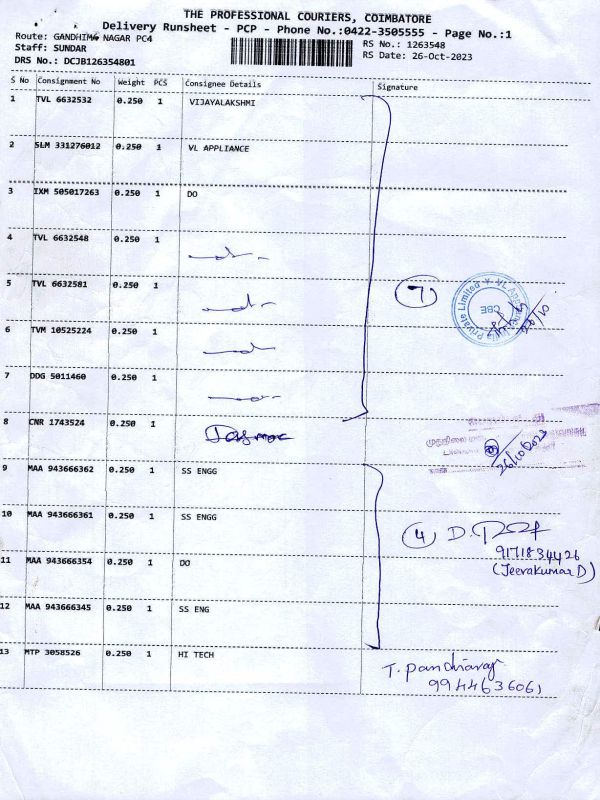 THE PROFESSIONAL COURIERS, COIMBATORE
Delivery Runsheet - PCP - Phone No.:0422-3505555 - Page No.:1
Route: GANDHIMA NAGAR PC4
RS No.: 1263548
Staff: SUNDAR
RS Date: 26-Oct-2023
DRS No.: DCJB126354801
S No Consignment No Weight PCS Consignee Details Signature
1 TVL 6632532 0.250 1 VIJAYALAKSHMI
2 SLM 331276012 0.250 1 VL APPLIANCE
3 IXM 505017263 0.250 1 DO
4 TVL 6632548 0.250 1
5 TVL 6632581 0.250 1
7
Private Limited
CBE
6 TVM 10525224 0.250 1
7 DDG 5011460 0.250 1
8 CNR 1743524 0.250 1
26/10/2023
9 MAA 943666362 0.250 1 SS ENGG
10 MAA 943666361 0.250 1 SS ENGG
4 D.
9171834426
(Jeevakumar D)
11 MAA 943666354 0.250 1 DO
12 MAA 943666345 0.250 1 SS ENG
13 MTP 3058526 0.250 1 HI TECH
T. Pandiaraj
9944636061